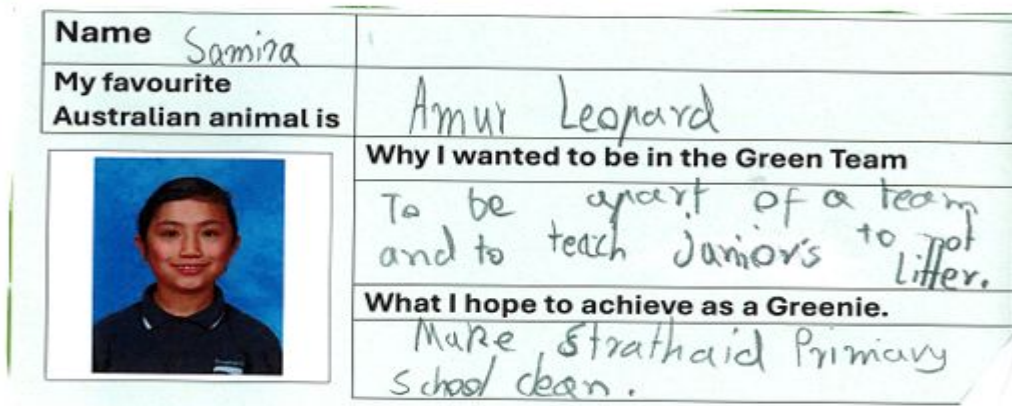 Name Samira
My favourite
Australian animal is
Amur Leopard
Why I wanted to be in the Green Team
To be apart of a team
and to teach Junior's to not
litter.
What I hope to achieve as a Greenie.
Make Strathaid Primary
School clean.